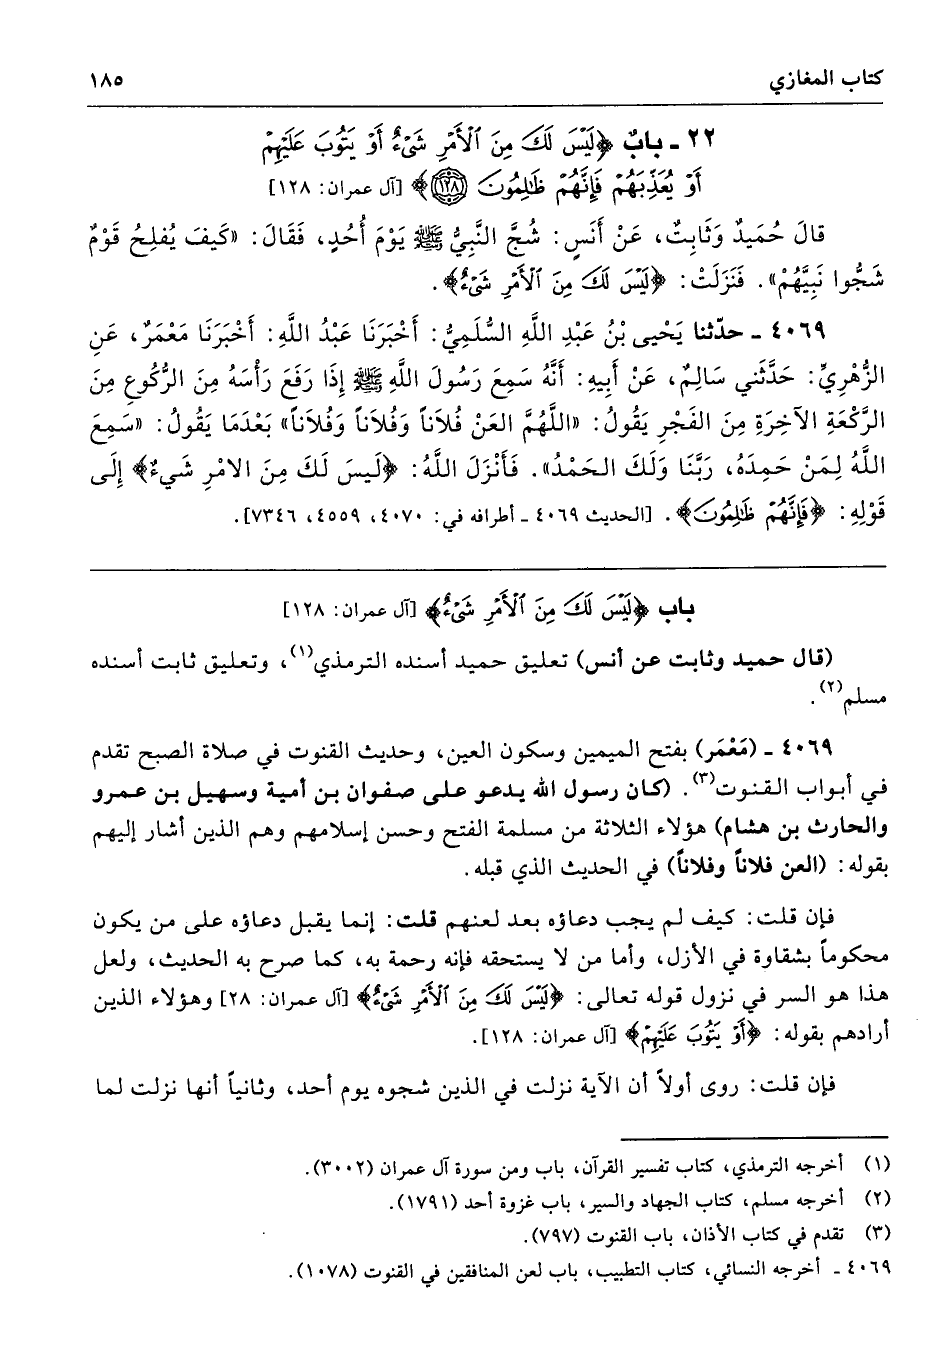 كتاب المغازي ١٨٥
٢٢ - بابٌ ﴿لَيْسَ لَكَ مِنَ ٱلْأَمْرِ شَىْءٌ أَوْ يَتُوبَ عَلَيْهِمْ
أَوْ يُعَذِّبَهُمْ فَإِنَّهُمْ ظَٰلِمُونَ ۝١٢٨﴾ [آل عمران: ١٢٨]
قالَ حُمَيدٌ وَثَابِتٌ، عَنْ أَنَسٍ: شُجَّ النَّبِيُّ ﷺ يَوْمَ أُحُدٍ، فَقَالَ: «كَيفَ يُفلِحُ قَوْمٌ
شَجُّوا نَبِيَّهُمْ». فَنَزَلَتْ: ﴿لَيْسَ لَكَ مِنَ ٱلْأَمْرِ شَىْءٌ﴾.
٤٠٦٩ - حدّثنا يَحْيى بْنُ عَبْدِ اللَّهِ السُّلَمِيُّ: أَخْبَرَنَا عَبْدُ اللَّهِ: أَخْبَرَنَا مَعْمَرٌ، عَنِ
الزُّهْرِيِّ: حَدَّثَني سَالِمٌ، عَنْ أَبِيهِ: أَنَّهُ سَمِعَ رَسُولَ اللَّهِ ﷺ إِذَا رَفَعَ رَأْسَهُ مِنَ الرُّكُوعِ مِنَ
الرَّكْعَةِ الآخِرَةِ مِنَ الفَجْرِ يَقُولُ: «اللَّهُمَّ العَنْ فُلاَناً وَفُلاَناً وَفُلاَناً» بَعْدَمَا يَقُولُ: «سَمِعَ
اللَّهُ لِمَنْ حَمِدَهُ، رَبَّنَا وَلَكَ الحَمْدُ». فَأَنْزَلَ اللَّهُ: ﴿لَيسَ لَكَ مِنَ الامْرِ شَيءٌ﴾ إِلَى
قَوْلِهِ: ﴿فَإِنَّهُمْ ظَٰلِمُونَ﴾. [الحديث ٤٠٦٩ - أطرافه في: ٤٠٧٠، ٤٥٥٩، ٧٣٤٦].
باب ﴿لَيْسَ لَكَ مِنَ ٱلْأَمْرِ شَىْءٌ﴾ [آل عمران: ١٢٨]
(قال حميد وثابت عن أنس) تعليق حميد أسنده الترمذي(١)، وتعليق ثابت أسنده
مسلم(٢).
٤٠٦٩ - (مَعْمَر) بفتح الميمين وسكون العين، وحديث القنوت في صلاة الصبح تقدم
في أبواب القنوت(٣). (كان رسول الله يدعو على صفوان بن أمية وسهيل بن عمرو
والحارث بن هشام) هؤلاء الثلاثة من مسلمة الفتح وحسن إسلامهم وهم الذين أشار إليهم
بقوله: (العن فلاناً وفلاناً) في الحديث الذي قبله.
فإن قلت: كيف لم يجب دعاؤه بعد لعنهم قلت: إنما يقبل دعاؤه على من يكون
محكوماً بشقاوة في الأزل، وأما من لا يستحقه فإنه رحمة به، كما صرح به الحديث، ولعل
هذا هو السر في نزول قوله تعالى: ﴿لَيْسَ لَكَ مِنَ ٱلْأَمْرِ شَىْءٌ﴾ [آل عمران: ٢٨] وهؤلاء الذين
أرادهم بقوله: ﴿أَوْ يَتُوبَ عَلَيْهِمْ﴾ [آل عمران: ١٢٨].
فإن قلت: روى أولاً أن الآية نزلت في الذين شجوه يوم أحد، وثانياً أنها نزلت لما
(١) أخرجه الترمذي، كتاب تفسير القرآن، باب ومن سورة آل عمران (٣٠٠٢).
(٢) أخرجه مسلم، كتاب الجهاد والسير، باب غزوة أحد (١٧٩١).
(٣) تقدم في كتاب الأذان، باب القنوت (٧٩٧).
٤٠٦٩ - أخرجه النسائي، كتاب التطبيب، باب لعن المنافقين في القنوت (١٠٧٨).